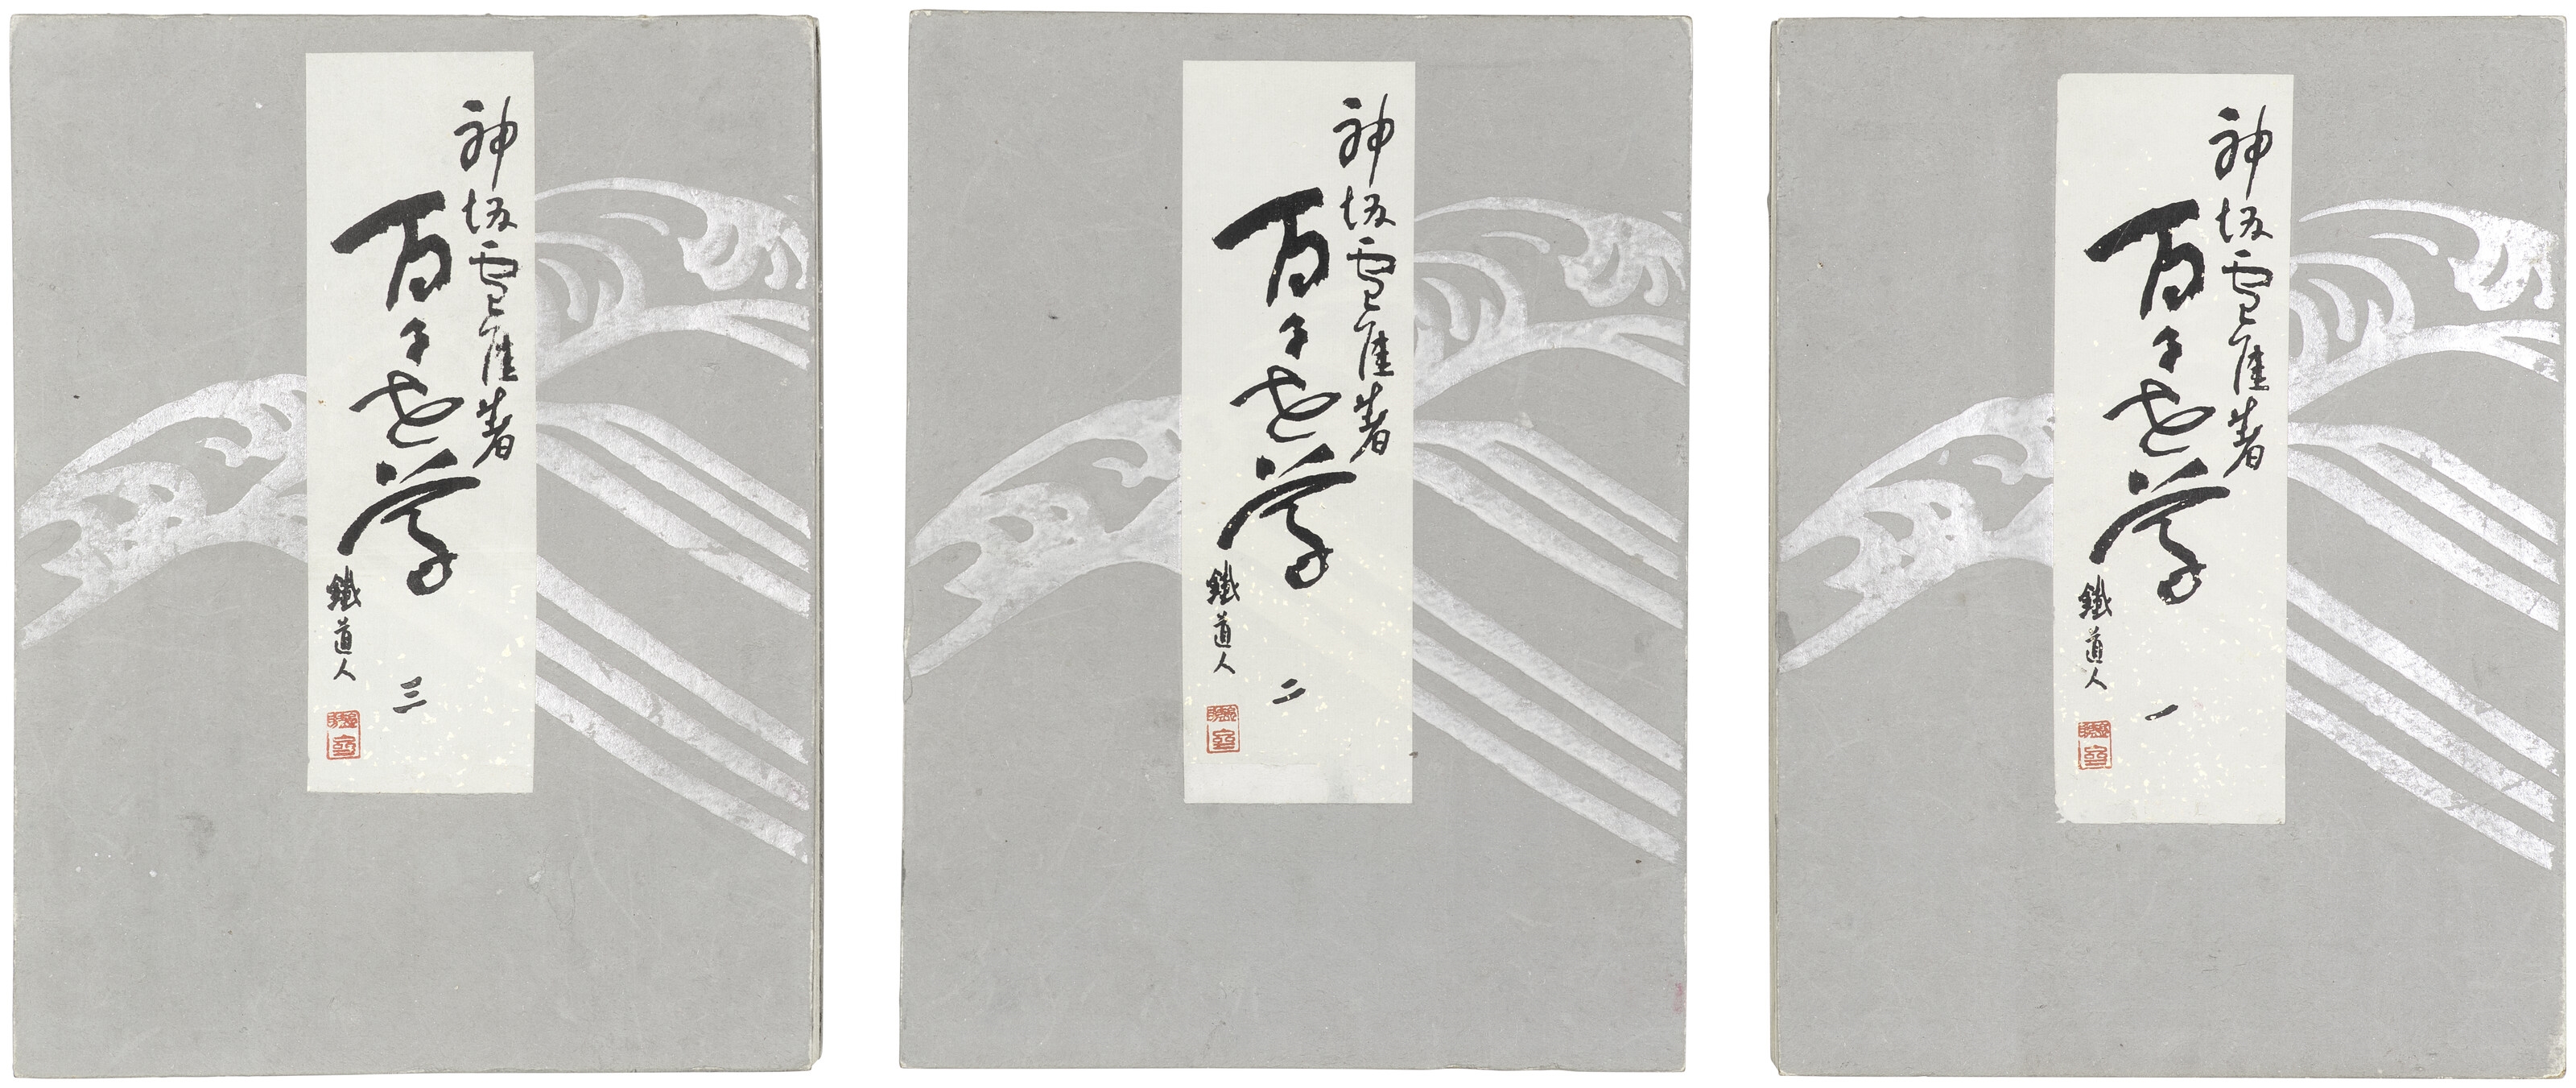 神坂雪佳著
百々世草 一
鐵道人
神坂雪佳著
百々世草 二
鐵道人
神坂雪佳著
百々世草 三
鐵道人